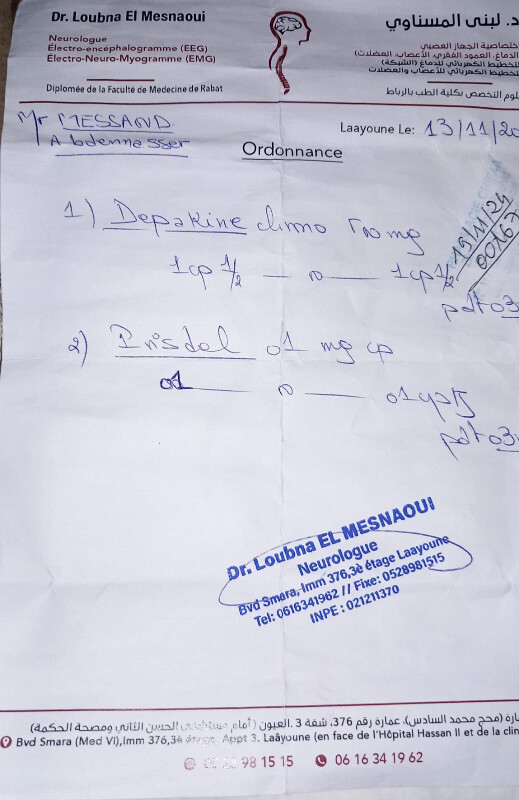 Dr. Loubna El Mesnaoui
Neurologue
Électro-encéphalogramme (EEG)
Électro-Neuro-Myogramme (EMG)
Diplomée de la Faculté de Medecine de Rabat
د. لبنى المسناوي
اختصاصية الجهاز العصبي
الدماغ، العمود الفقري، الأعصاب، العضلات)
التخطيط الكهربائي للدماغ (الشبكة)
التخطيط الكهربائي للأعصاب والعضلات
لوم التخصص بكلية الطب بالرباط
Mr MESSAND
Abdennesser
Laayoune Le: 13/11/20
Ordonnance
19/11/24
00167
1) Depakine chrono 500 mg
1cp 1/2 — — 1cp 1/2
pdt 03
2) 01 mg cp
01 — — 01cp/j
pdt 03
Dr. Loubna EL MESNAOUI
Neurologue
Bvd Smara, Imm 376,3è étage Laayoune
Tel: 0616341962 // Fixe: 0528981515
INPE : 021211370
رة (محج محمد السادس)، عمارة رقم 376، شقة 3، العيون (أمام الحسن الثاني ومصحة الحكمة)
Bvd Smara (Med VI),Imm 376,3è étage. Appt 3. Laâyoune (en face de l'Hôpital Hassan II et de la clin
98 15 15 06 16 34 19 62